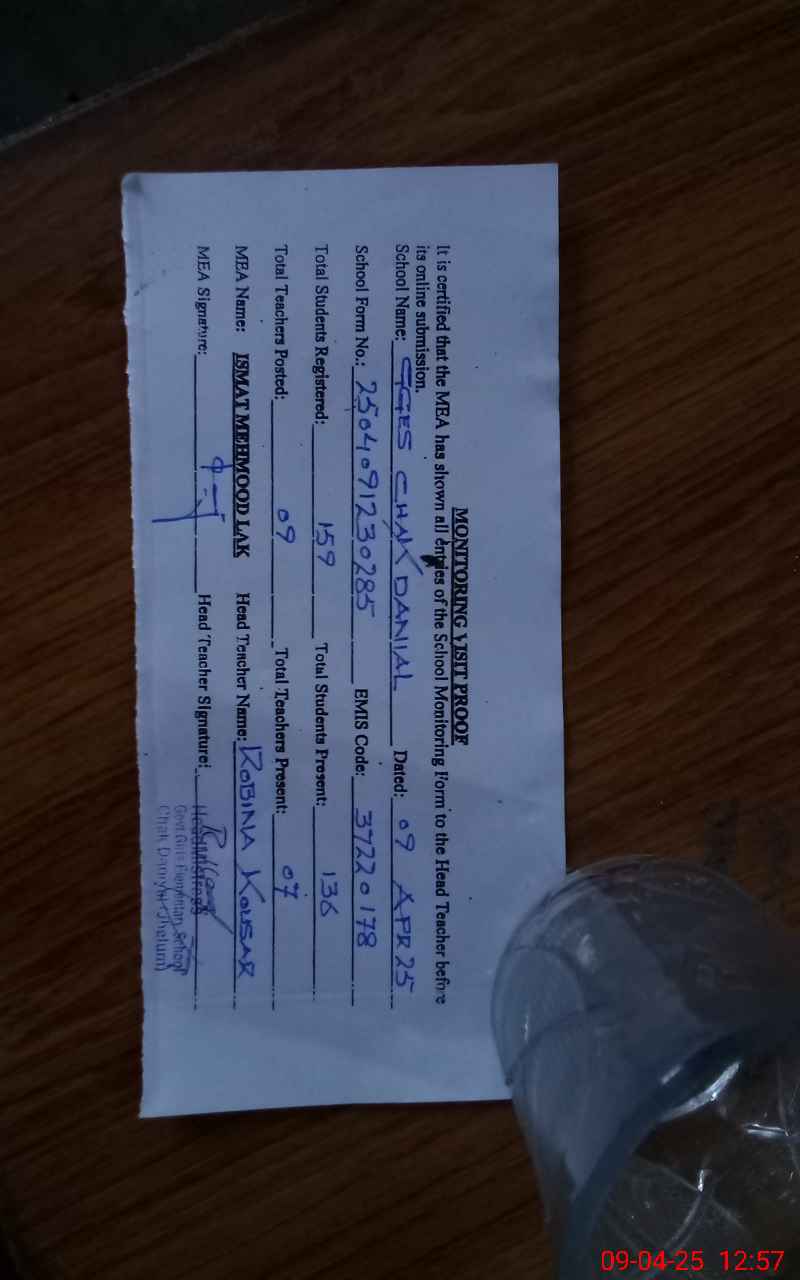 MONITORING VISIT PROOF
It is certified that the MEA has shown all entries of the School Monitoring Form to the Head Teacher before
its online submission.
School Name: GGES CHAK DANIAL Dated: 09 APR 25
School Form No.: 2504091230285 EMIS Code: 37220178
Total Students Registered: 159 Total Students Present: 136
Total Teachers Posted: 09 Total Teachers Present: 07
MEA Name: ISMAT MEHMOOD LAK Head Teacher Name: ROBINA KOUSAR
MEA Signature: Head Teacher Signature:
Headmistress
Govt. Girls Elementary School
Chak Daniyal (Jhelum)
09-04-25 12:57